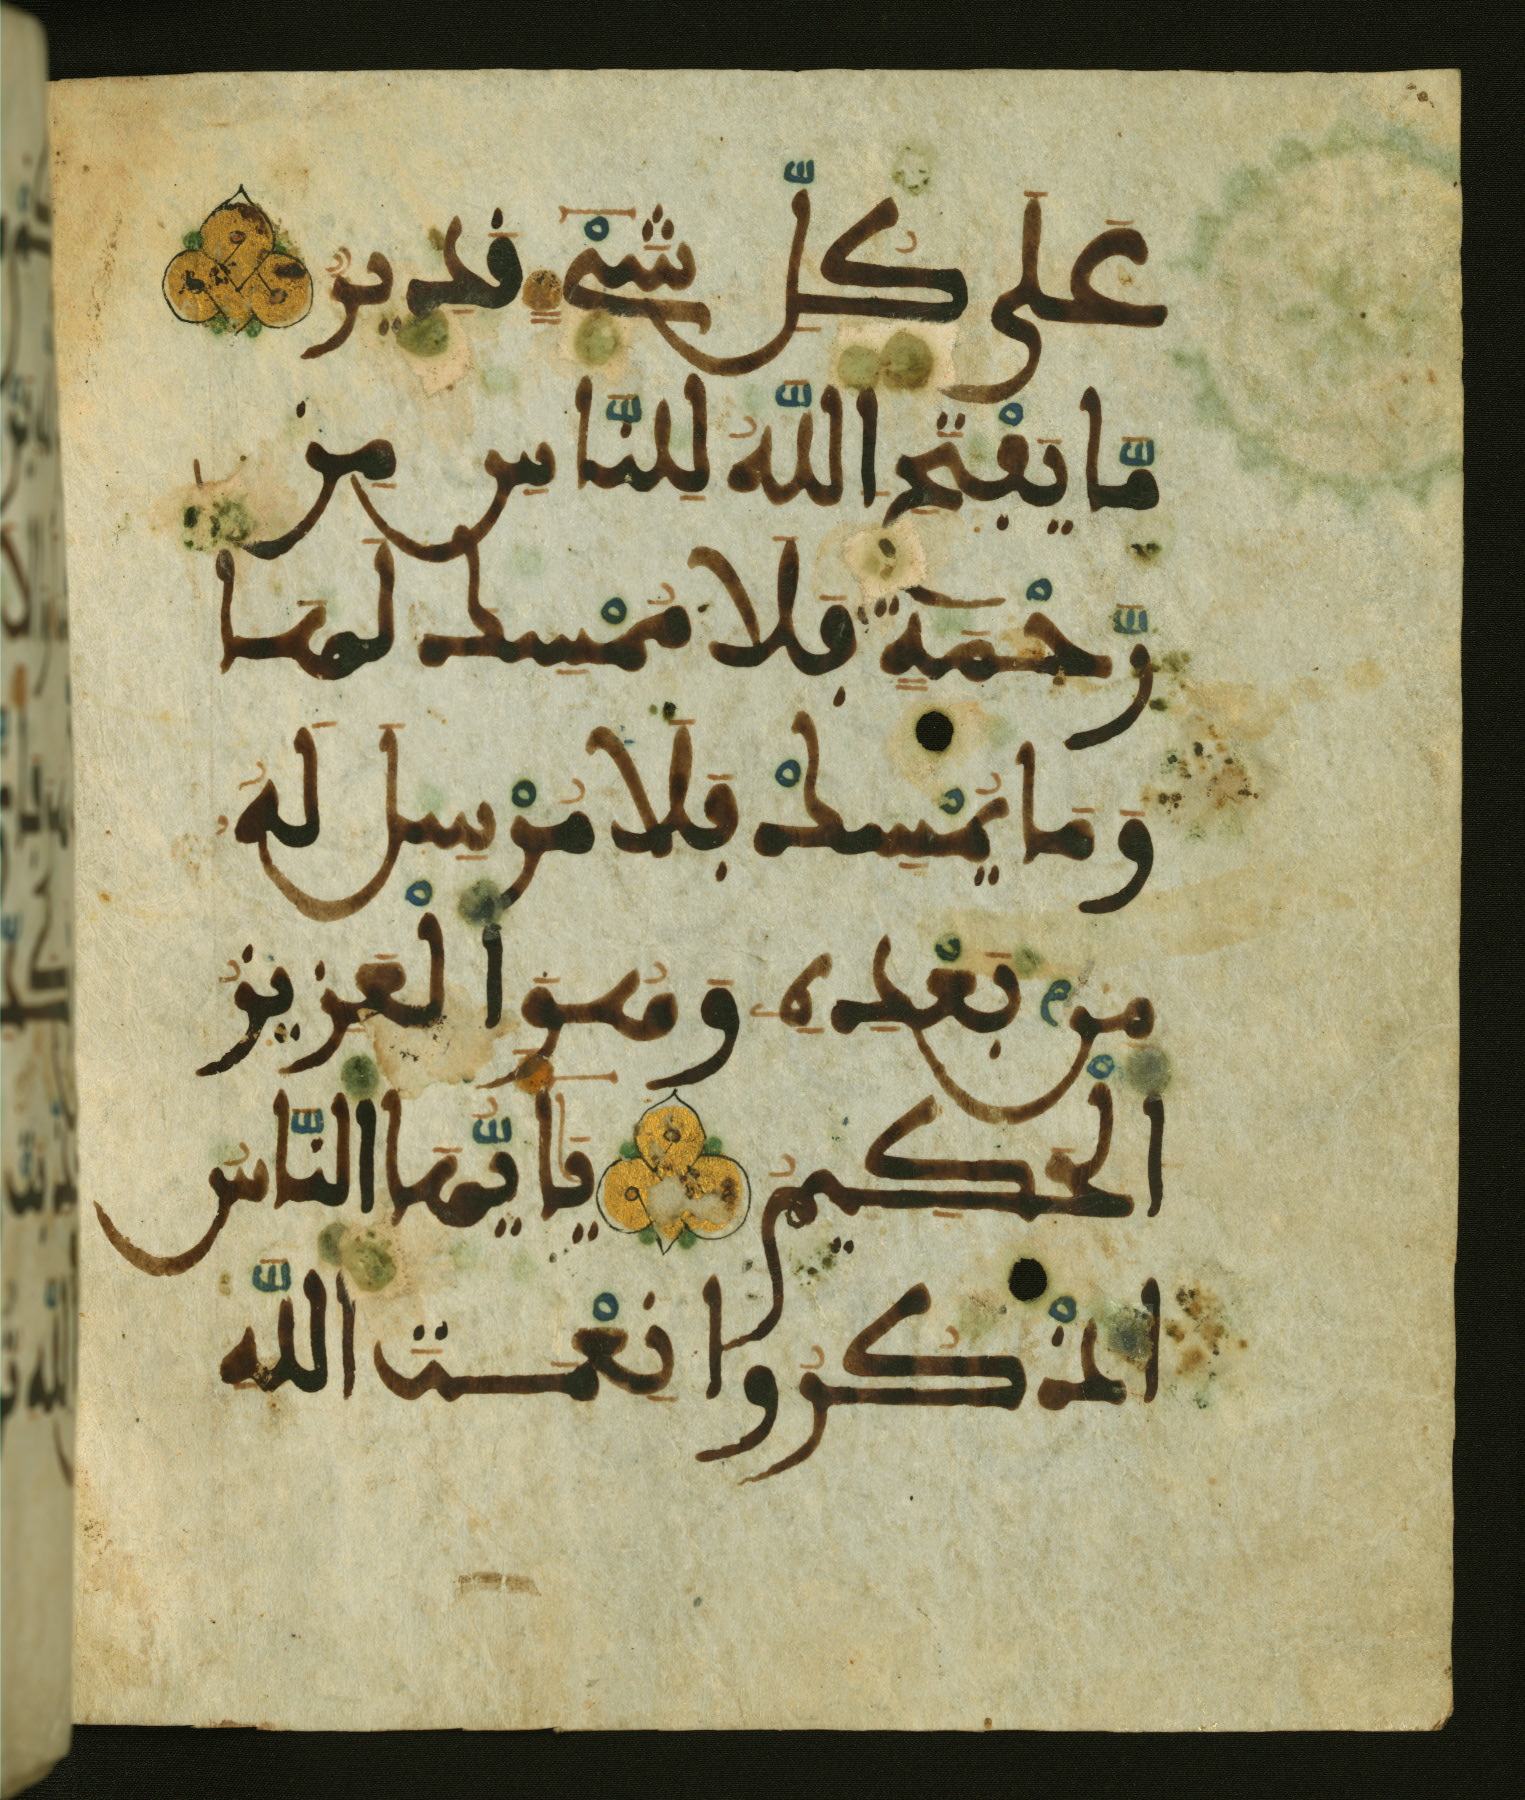 عَلَىٰ كُلِّ شَيْءٍ قَدِيرٌ
مَّا يَفْتَحِ اللَّهُ لِلنَّاسِ مِن
رَّحْمَةٍ فَلَا مُمْسِكَ لَهَا
وَمَا يُمْسِكْ فَلَا مُرْسِلَ لَهُ
مِن بَعْدِهِ وَهُوَ الْعَزِيزُ
الْحَكِيمُ يَا أَيُّهَا النَّاسُ
اذْكُرُوا نِعْمَتَ اللَّهِ